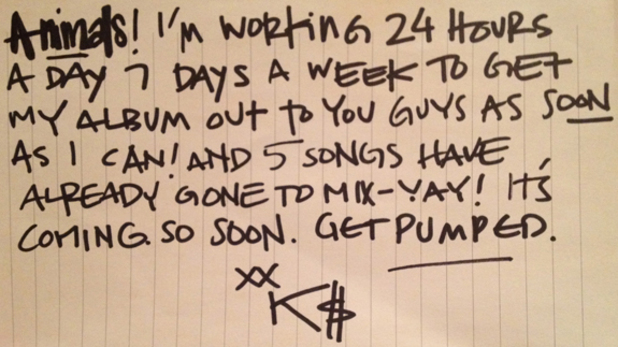 Animals! I'm WORKING 24 HOURS
A DAY 7 DAYS A WEEK TO GET
MY ALBUM OUT TO YOU GUYS AS SOON
AS I CAN! AND 5 SONGS HAVE
ALREADY GONE TO MIX-YAY! IT'S
COMING. SO SOON. GET PUMPED.
XX
K$